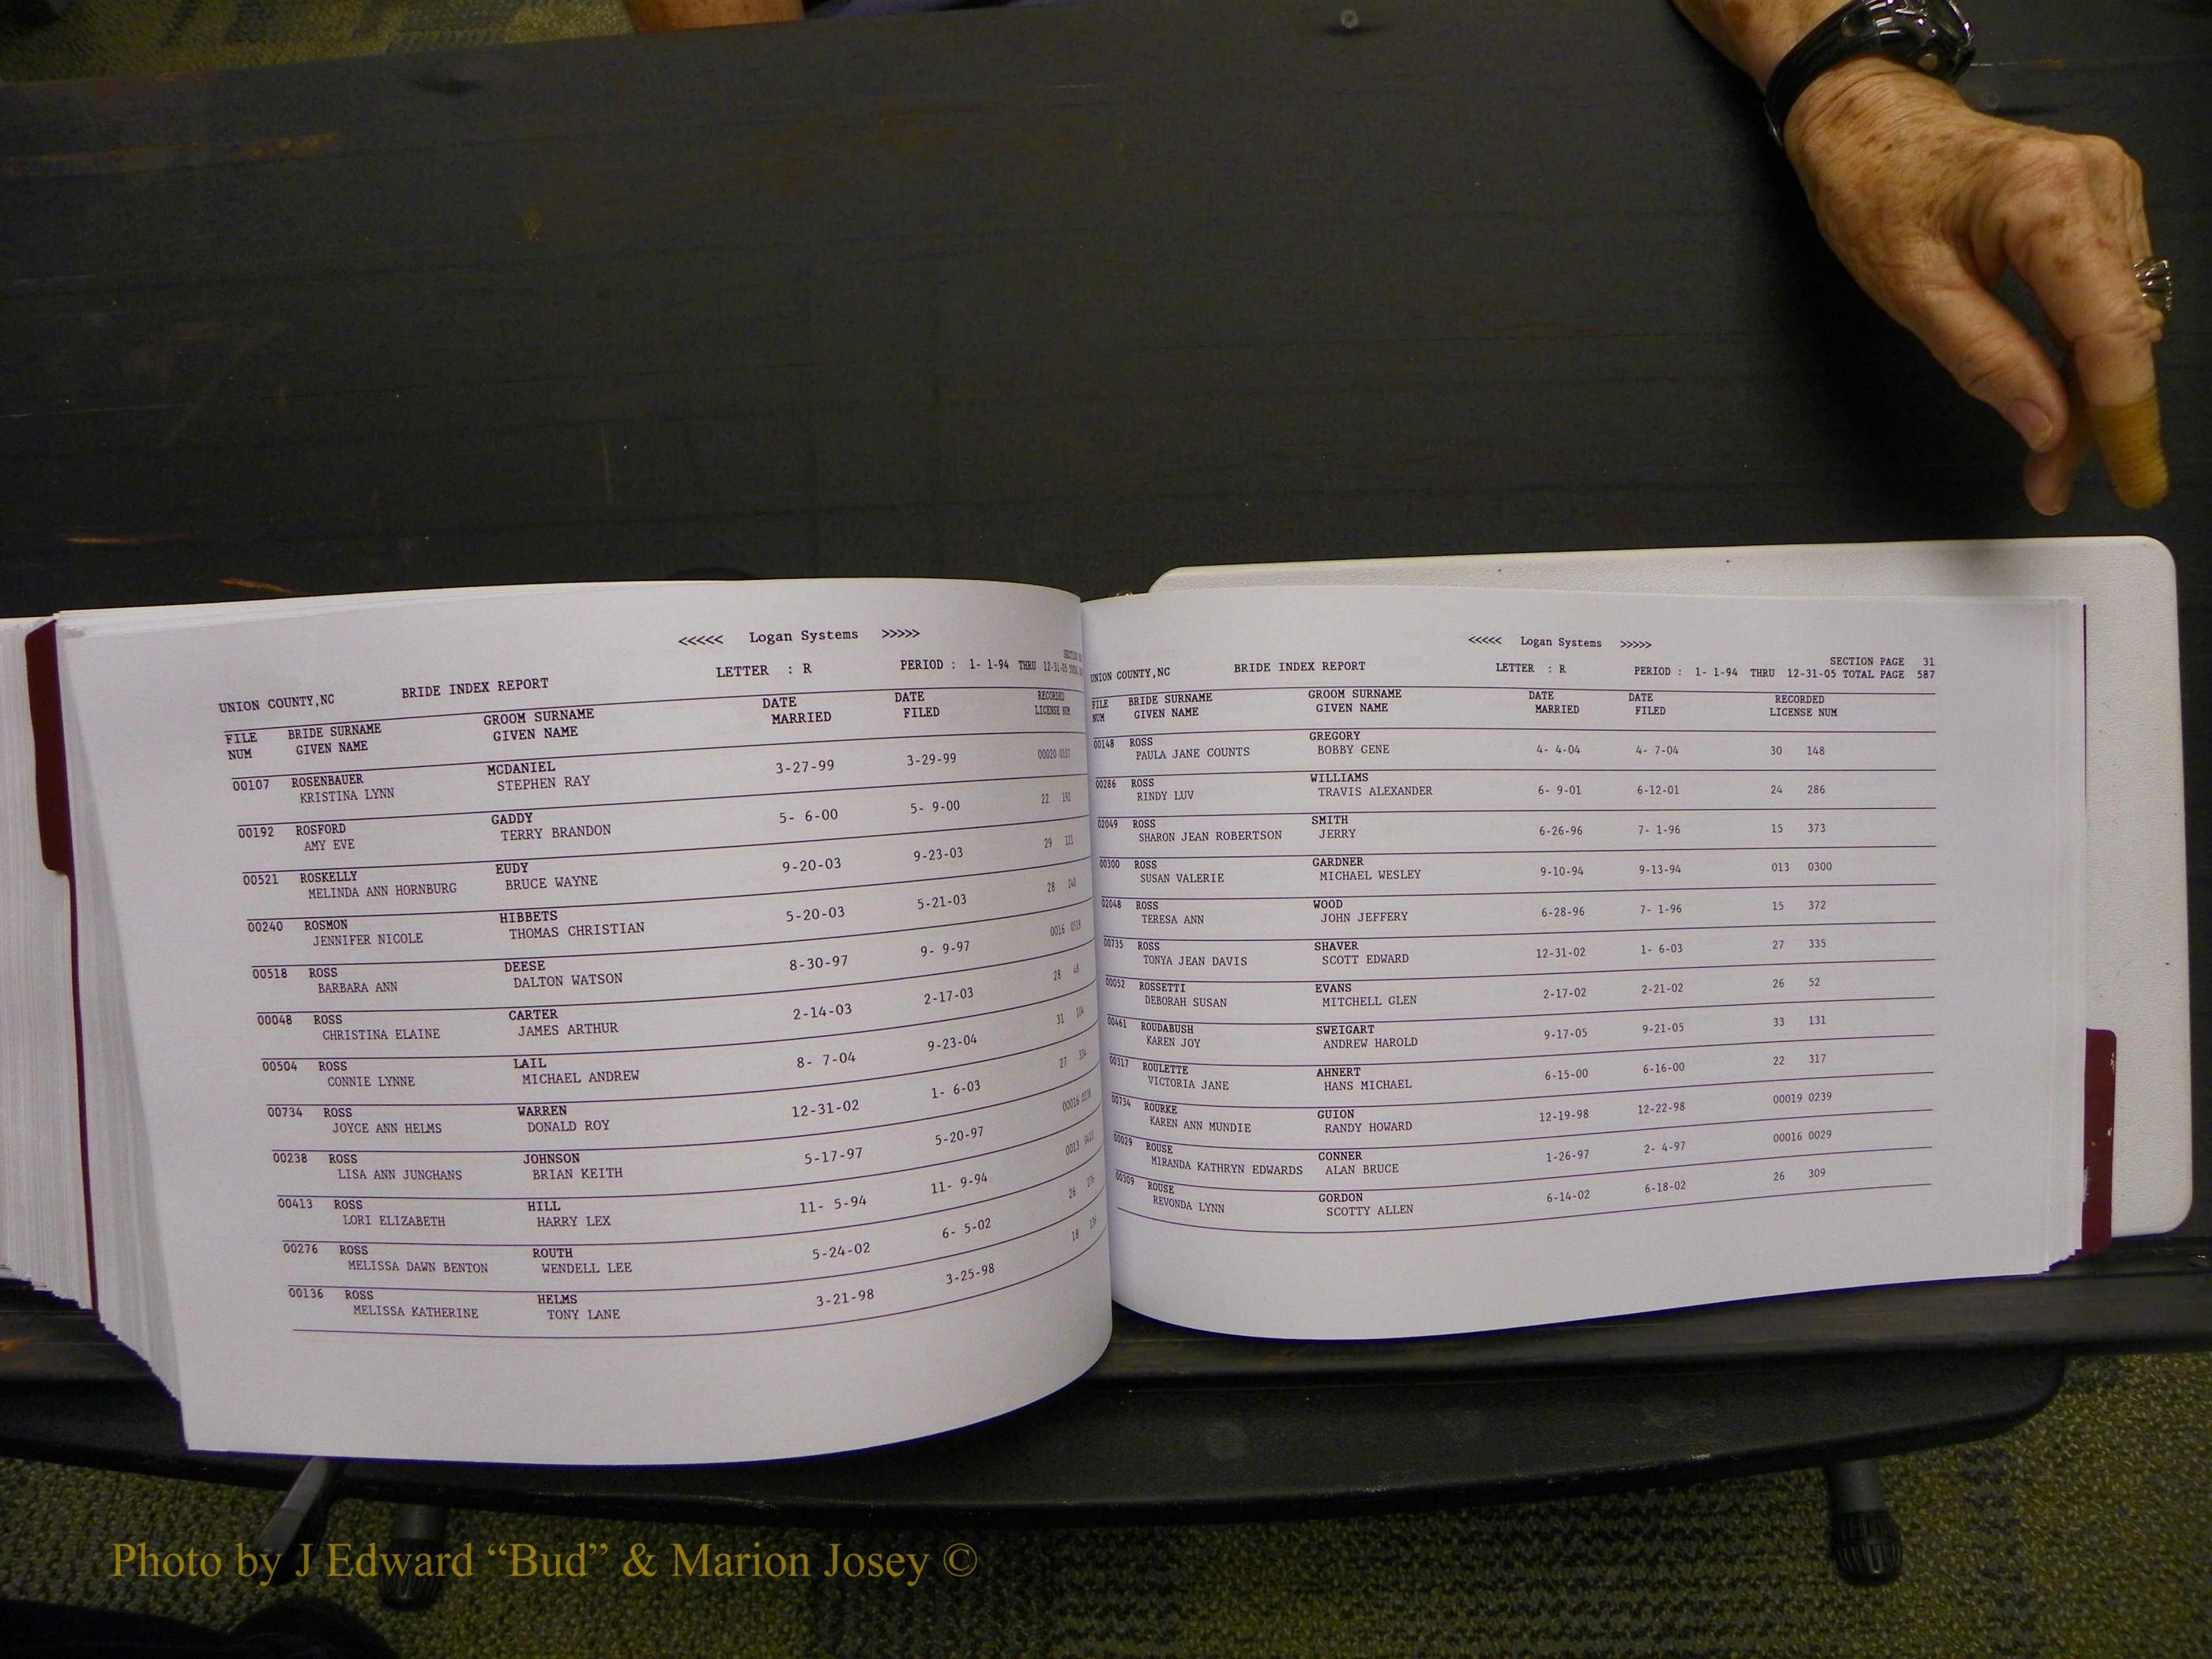 <<<<< Logan Systems >>>>>
UNION COUNTY,NC BRIDE INDEX REPORT LETTER : R PERIOD : 1- 1-94 THRU 12-31-05
FILE BRIDE SURNAME GROOM SURNAME DATE DATE RECORDED
NUM GIVEN NAME GIVEN NAME MARRIED FILED LICENSE NUM
00107 ROSENBAUER MCDANIEL 3-27-99 3-29-99 00020 0107
KRISTINA LYNN STEPHEN RAY
00192 ROSFORD GADDY 5- 6-00 5- 9-00 22 192
AMY EVE TERRY BRANDON
00521 ROSKELLY EUDY 9-20-03 9-23-03 29
MELINDA ANN HORNBURG BRUCE WAYNE
00240 ROSMON HIBBETS 5-20-03 5-21-03 28 240
JENNIFER NICOLE THOMAS CHRISTIAN
00518 ROSS DEESE 8-30-97 9- 9-97 0016 0518
BARBARA ANN DALTON WATSON
00048 ROSS CARTER 2-14-03 2-17-03 28 48
CHRISTINA ELAINE JAMES ARTHUR
00504 ROSS LAIL 8- 7-04 9-23-04 31
CONNIE LYNNE MICHAEL ANDREW
00734 ROSS WARREN 12-31-02 1- 6-03 27 334
JOYCE ANN HELMS DONALD ROY
00238 ROSS JOHNSON 5-17-97 5-20-97 00016 0238
LISA ANN JUNGHANS BRIAN KEITH
00413 ROSS HILL 11- 5-94 11- 9-94 0013 0413
LORI ELIZABETH HARRY LEX
00276 ROSS ROUTH 5-24-02 6- 5-02 26 276
MELISSA DAWN BENTON WENDELL LEE
00136 ROSS HELMS 3-21-98 3-25-98 18 136
MELISSA KATHERINE TONY LANE
<<<<< Logan Systems >>>>>
SECTION PAGE 31
UNION COUNTY,NC BRIDE INDEX REPORT LETTER : R PERIOD : 1- 1-94 THRU 12-31-05 TOTAL PAGE 587
FILE BRIDE SURNAME GROOM SURNAME DATE DATE RECORDED
NUM GIVEN NAME GIVEN NAME MARRIED FILED LICENSE NUM
00148 ROSS GREGORY 4- 4-04 4- 7-04 30 148
PAULA JANE COUNTS BOBBY GENE
00286 ROSS WILLIAMS 6- 9-01 6-12-01 24 286
RINDY LUV TRAVIS ALEXANDER
02049 ROSS SMITH 6-26-96 7- 1-96 15 373
SHARON JEAN ROBERTSON JERRY
00300 ROSS GARDNER 9-10-94 9-13-94 013 0300
SUSAN VALERIE MICHAEL WESLEY
02048 ROSS WOOD 6-28-96 7- 1-96 15 372
TERESA ANN JOHN JEFFERY
00735 ROSS SHAVER 12-31-02 1- 6-03 27 335
TONYA JEAN DAVIS SCOTT EDWARD
00052 ROSSETTI EVANS 2-17-02 2-21-02 26 52
DEBORAH SUSAN MITCHELL GLEN
00461 ROUDABUSH SWEIGART 9-17-05 9-21-05 33 131
KAREN JOY ANDREW HAROLD
00317 ROULETTE AHNERT 6-15-00 6-16-00 22 317
VICTORIA JANE HANS MICHAEL
00734 ROURKE GUION 12-19-98 12-22-98 00019 0239
KAREN ANN MUNDIE RANDY HOWARD
00029 ROUSE CONNER 1-26-97 2- 4-97 00016 0029
MIRANDA KATHRYN EDWARDS ALAN BRUCE
00309 ROUSE GORDON 6-14-02 6-18-02 26 309
REVONDA LYNN SCOTTY ALLEN
Photo by J Edward “Bud” & Marion Josey ©